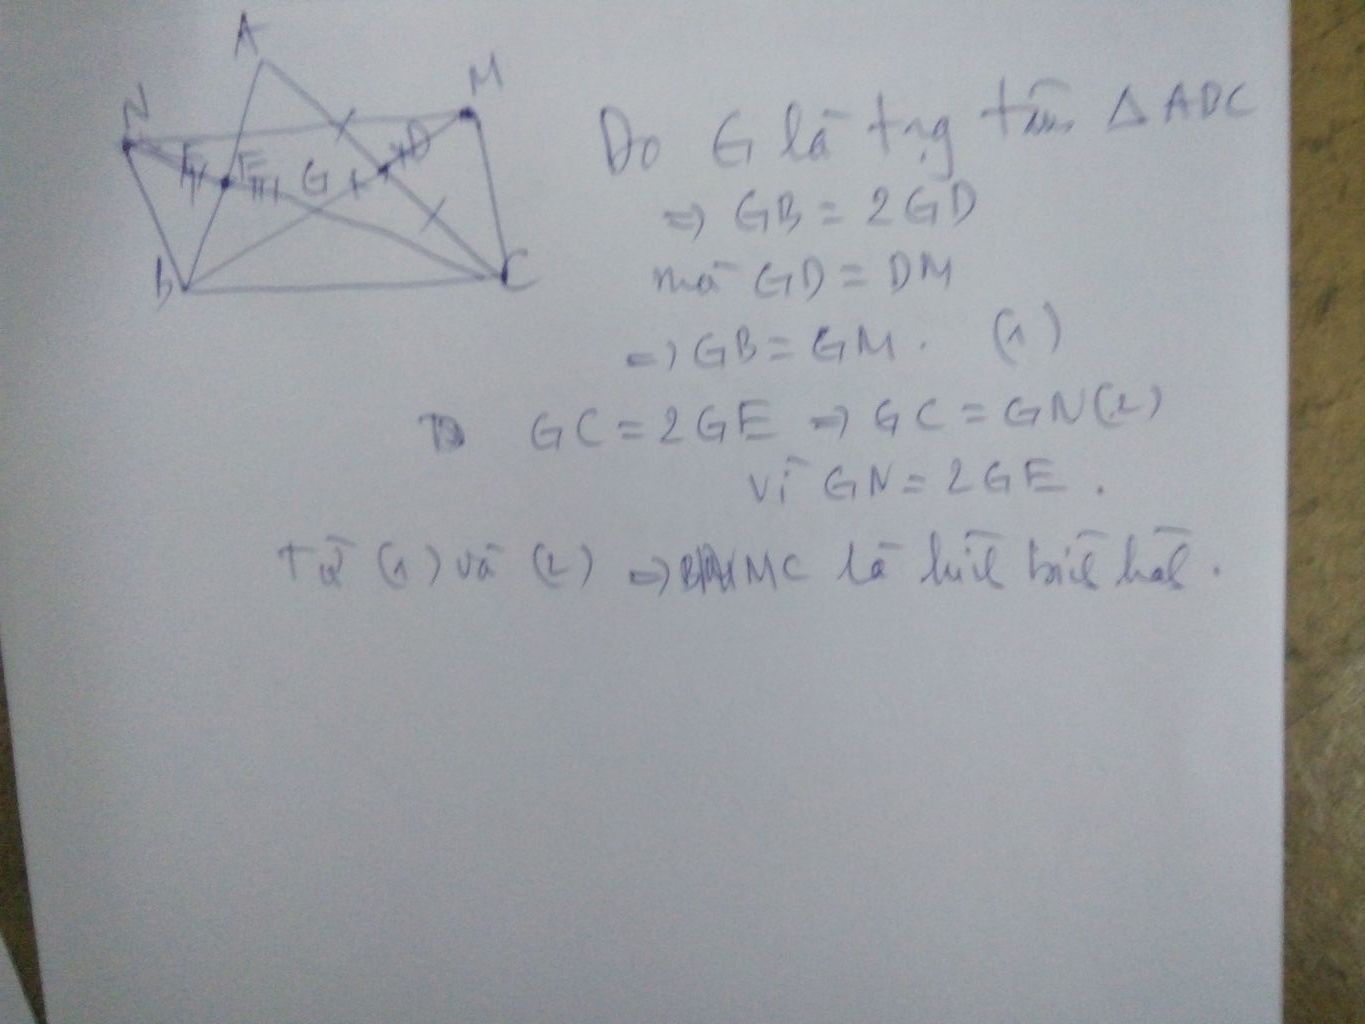 A
M
N
D
E
G
B
C
Do G là trg tâm △ ABC
=> GB = 2GD
mà GD = DM
=> GB = GM. (1)
GC = 2GE => GC = GN (2)
vì GN = 2GE.
Từ (1) và (2) => MC là hình bình hành.